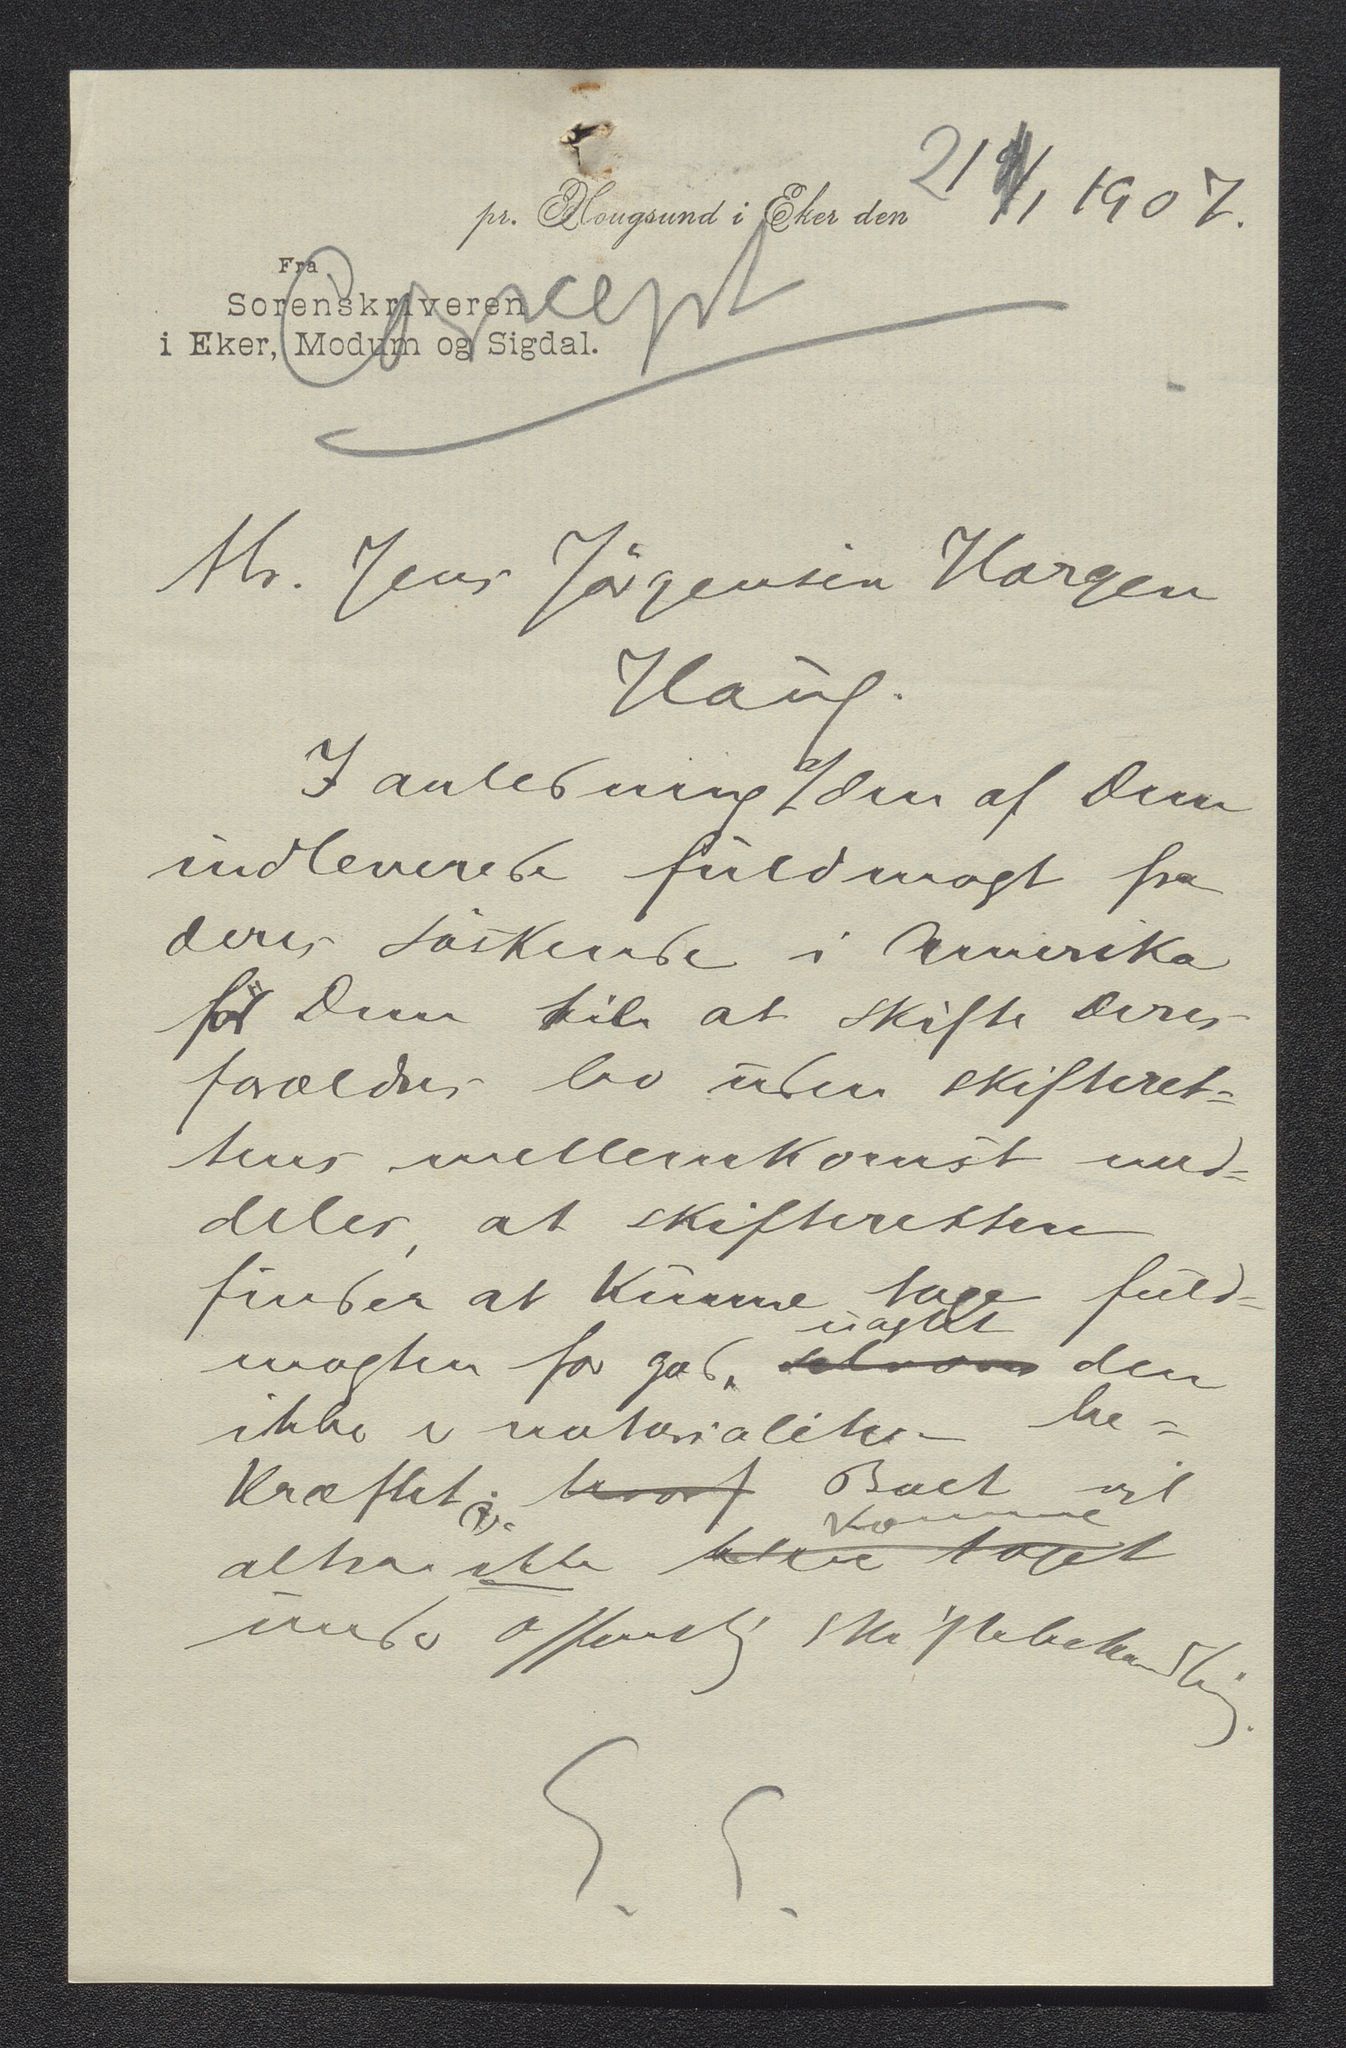 pr. Hougsund i Eker den 21/1 1907.
Concept
Fra
Sorenskriveren
i Eker, Modum og Sigdal.
Hr. Jens Jörgensen Horgen
Haug.
I anledning af den af Dem
indleverede fuldmagt fra
deres söskende i Amerika
for Dem til at skifte Deres
forældres bo uden skifteret-
tens mellemkomst med-
deles, at skifteretten
finder at kunne tage fuld-
magten for god, selv om uagtet den
ikke er notorialiter be-
kræftet; hvorf Boet vil
altsaa ikke blive taget komme
under offentlig skiftebehandling.
E. E.